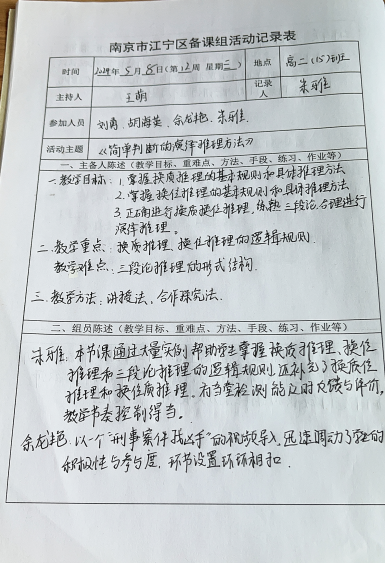 南京市江宁区备课组活动记录表
时间 2024年5月8日(第12周 星期三) 地点 高二(15)班
主持人 王萌 记录人 朱雅
参加人员 刘勇 胡海英 余龙艳 朱雅
活动主题 《简单判断的演绎推理方法》
一、主备人陈述(教学目标、重难点、方法、手段、练习、作业等)
一、教学目标:1.掌握换质推理的基本规则和具体推理方法
2.掌握换位推理的基本规则和具体推理方法
3.正确进行换质换位推理,熟悉三段论,合理进行
演绎推理。
二、教学重点:换质推理、换位推理的逻辑规则.
教学难点:三段论推理的形式结构.
三、教学方法:讲授法、合作探究法.
二、组员陈述(教学目标、重难点、方法、手段、练习、作业等)
朱雅:本节课通过大量实例帮助学生掌握换质推理、换位
推理和三段论推理的逻辑规则,还补充了换质位
推理和换位质推理。有当堂检测能及时反馈与评价,
教学节奏控制得当。
余龙艳:以一个“刑事案件找凶手”的视频导入,迅速调动了学生的
积极性与参与度.环节设置环环相扣.